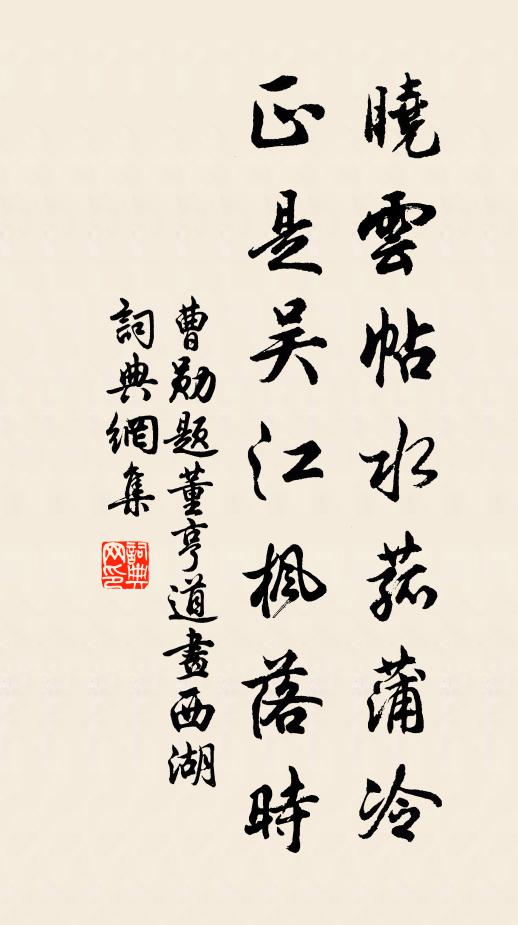 曉雲帖水菰蒲冷
正是吳江楓落時
曹勛題董亨道畫西湖
詞典網集
詞典
网印